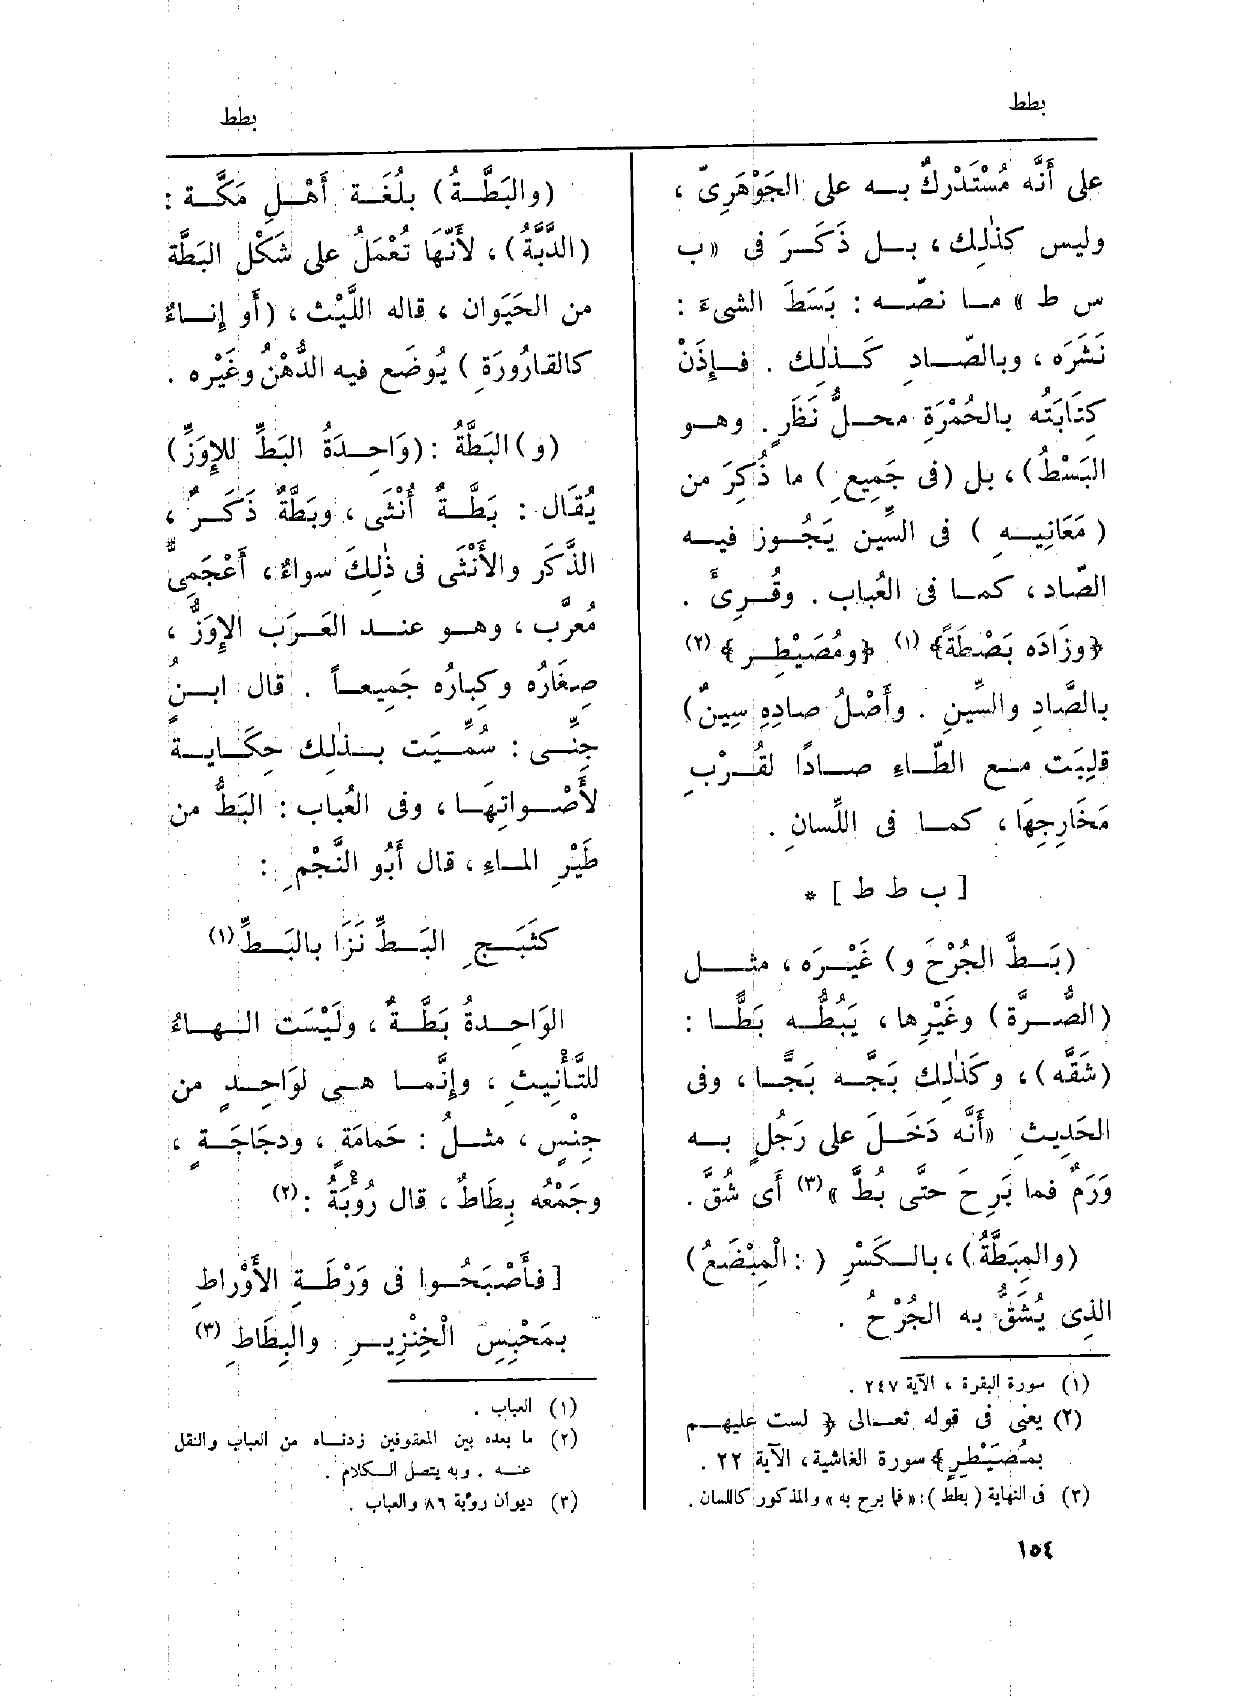 بطط
بطط
على أَنَّه مُسْتَدْرَكٌ بـه على الجَوْهَرِىّ ،
وليس كذٰلِك ، بـل ذَكَـرَ فى «ب
س ط » مـا نصّـه : بَسَطَ الشىءَ :
نَشَرَه ، وبالصّـادِ كَـذٰلِك . فـإِذَنْ
كِتَابَتُه بالحُمْرَةِ محـلُّ نَظَرٍ . وهـو
البَسْطُ) ، بل (فى جَمِيعِ ) ما ذُكِرَ من
( مَعَانِيـهِ ) فى السِّين يَجُـوز فيـه
الصّاد ، كمـا فى العُباب . وقُـرِئَ .
﴿وزَادَه بَصْطَةً﴾ (١) ﴿ومُصَيْطِـر ﴾ (٢)
بالصَّادِ والسِّينِ . وأَصْلُ صادِهِ سِينٌ)
قلِبَت مـع الطّـاءِ صـادًا لقُـرْبِ
مَخَارِجِهَا ، كمـا فى اللِّسانِ .
[ ب ط ط ] *
(بَـطَّ الجُرْحَ و) غَيْـرَه ، مثـل
(الصُّـرَّة) وغَيْرِها ، يَبُطُّـه بَطًّـا :
(شَقَّه) ، وكَذٰلك بَجَّـه بَجًّـا ، وفى
الحَدِيثِ «أَنَّه دَخَـلَ على رَجُلٍ بـه
وَرَمٌ فما بَرِحَ حتَّى بُطَّ » (٣) أَى شُقَّ .
(والمِبَطَّةُ) ، بالـكَسْرِ ( : الْمِبْضَعُ)
الذى يُشَقُّ به الجُرْحُ .
(١) سورة البقرة ، الآية ٢٤٧ .
(٢) يعنى فى قوله تعـالى ﴿ لست عليهـم
بمُصَيْطِرٍ﴾ سورة الغاشية ، الآية ٢٢ .
(٣) فى النهاية ( بطط ) : « فما برح به » والمذكور كاللسان .
(والبَطَّـةُ) بلُغَـة أَهْـلِ مَكَّـة :
(الدَّبَّةُ) ، لأَنّهَا تُعْمَلُ على شَكْل البَطَّة
من الحَيَوان ، قاله اللَّيْث ، (أَو إِنـاءٌ
كالقارُورَةِ ) يُوضَع فيه الدُّهْنُ وغَيْره .
(و) البَطَّةُ : (وَاحِـدَةُ البَطِّ للإِوَزِّ)
يُقَال : بَطَّـةٌ أُنْثَى ، وبَطَّةٌ ذَكَـرٌ ،
الذَّكَر والأُنْثَى فى ذٰلِكَ سواءٌ ، أَعْجَمِىٌّ
مُعرَّب ، وهـو عنـد العَـرَب الإِوَزُّ ،
صِغَارُه وكِبارُه جَمِيعـاً . قال ابـنُ
جِنِّـى : سُمِّـيَت بـذٰلِك حِكَـايـةً
لأَصْـواتِهَـا ، وفى العُباب : البَطُّ من
طَيْرِ المـاءِ ، قال أَبُو النَّجْم :
كثَبَـجِ البَـطِّ نَزَا بالبَـطِّ (١)
الوَاحِـدةُ بَطَّـةٌ ، ولَيْسَت الـهـاءُ
للتَّأْنِيثِ ، وإِنَّمـا هـى لوَاحِـدٍ من
جِنْسٍ ، مثـلُ : حَمامَةٍ ، ودجَاجَـةٍ ،
وجَمْعُه بِطَاطٌ ، قال رُؤْبَةُ : (٢)
[ فـأَصْبَحُـوا فى وَرْطَـةِ الأَوْراطِ
بمَحْبِسِ الْخِنْزِيـرِ والبِطَاطِ (٣)
(١) العباب .
(٢) ما بعده بين المعقوفين زدنـاه من العباب والنقل
عنـه . وبه يتصل الـكلام .
(٣) ديوان رؤبة ٨٦ والعباب .
١٥٤